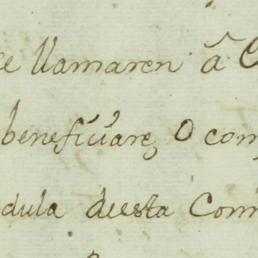 e llamaren â C
benefiċiare, O com
dula deesta Com